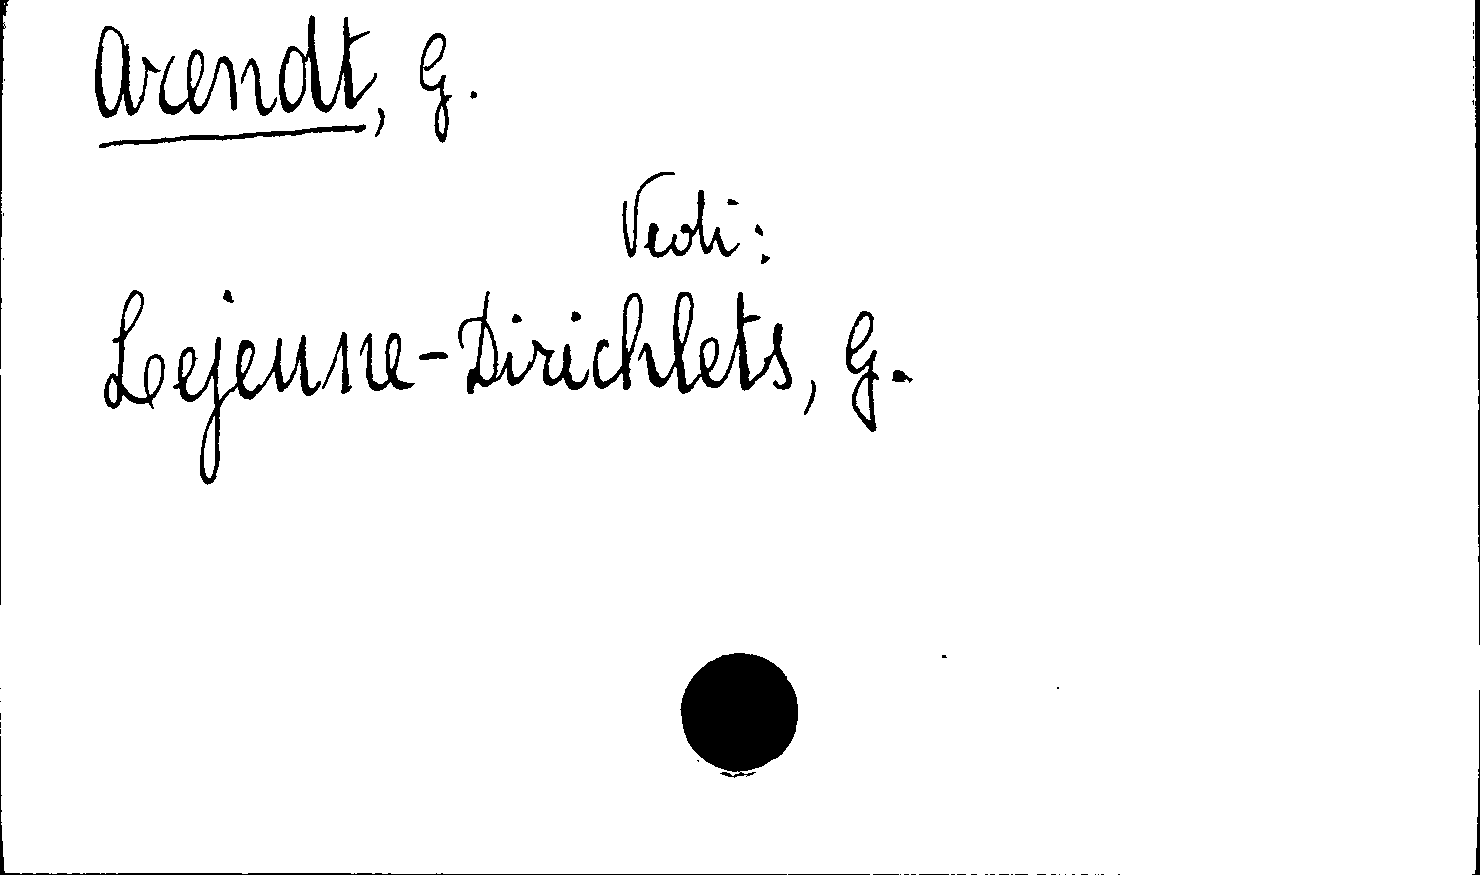 Arendt, G.
Vedi:
Lejeune-Dirichlets, G.